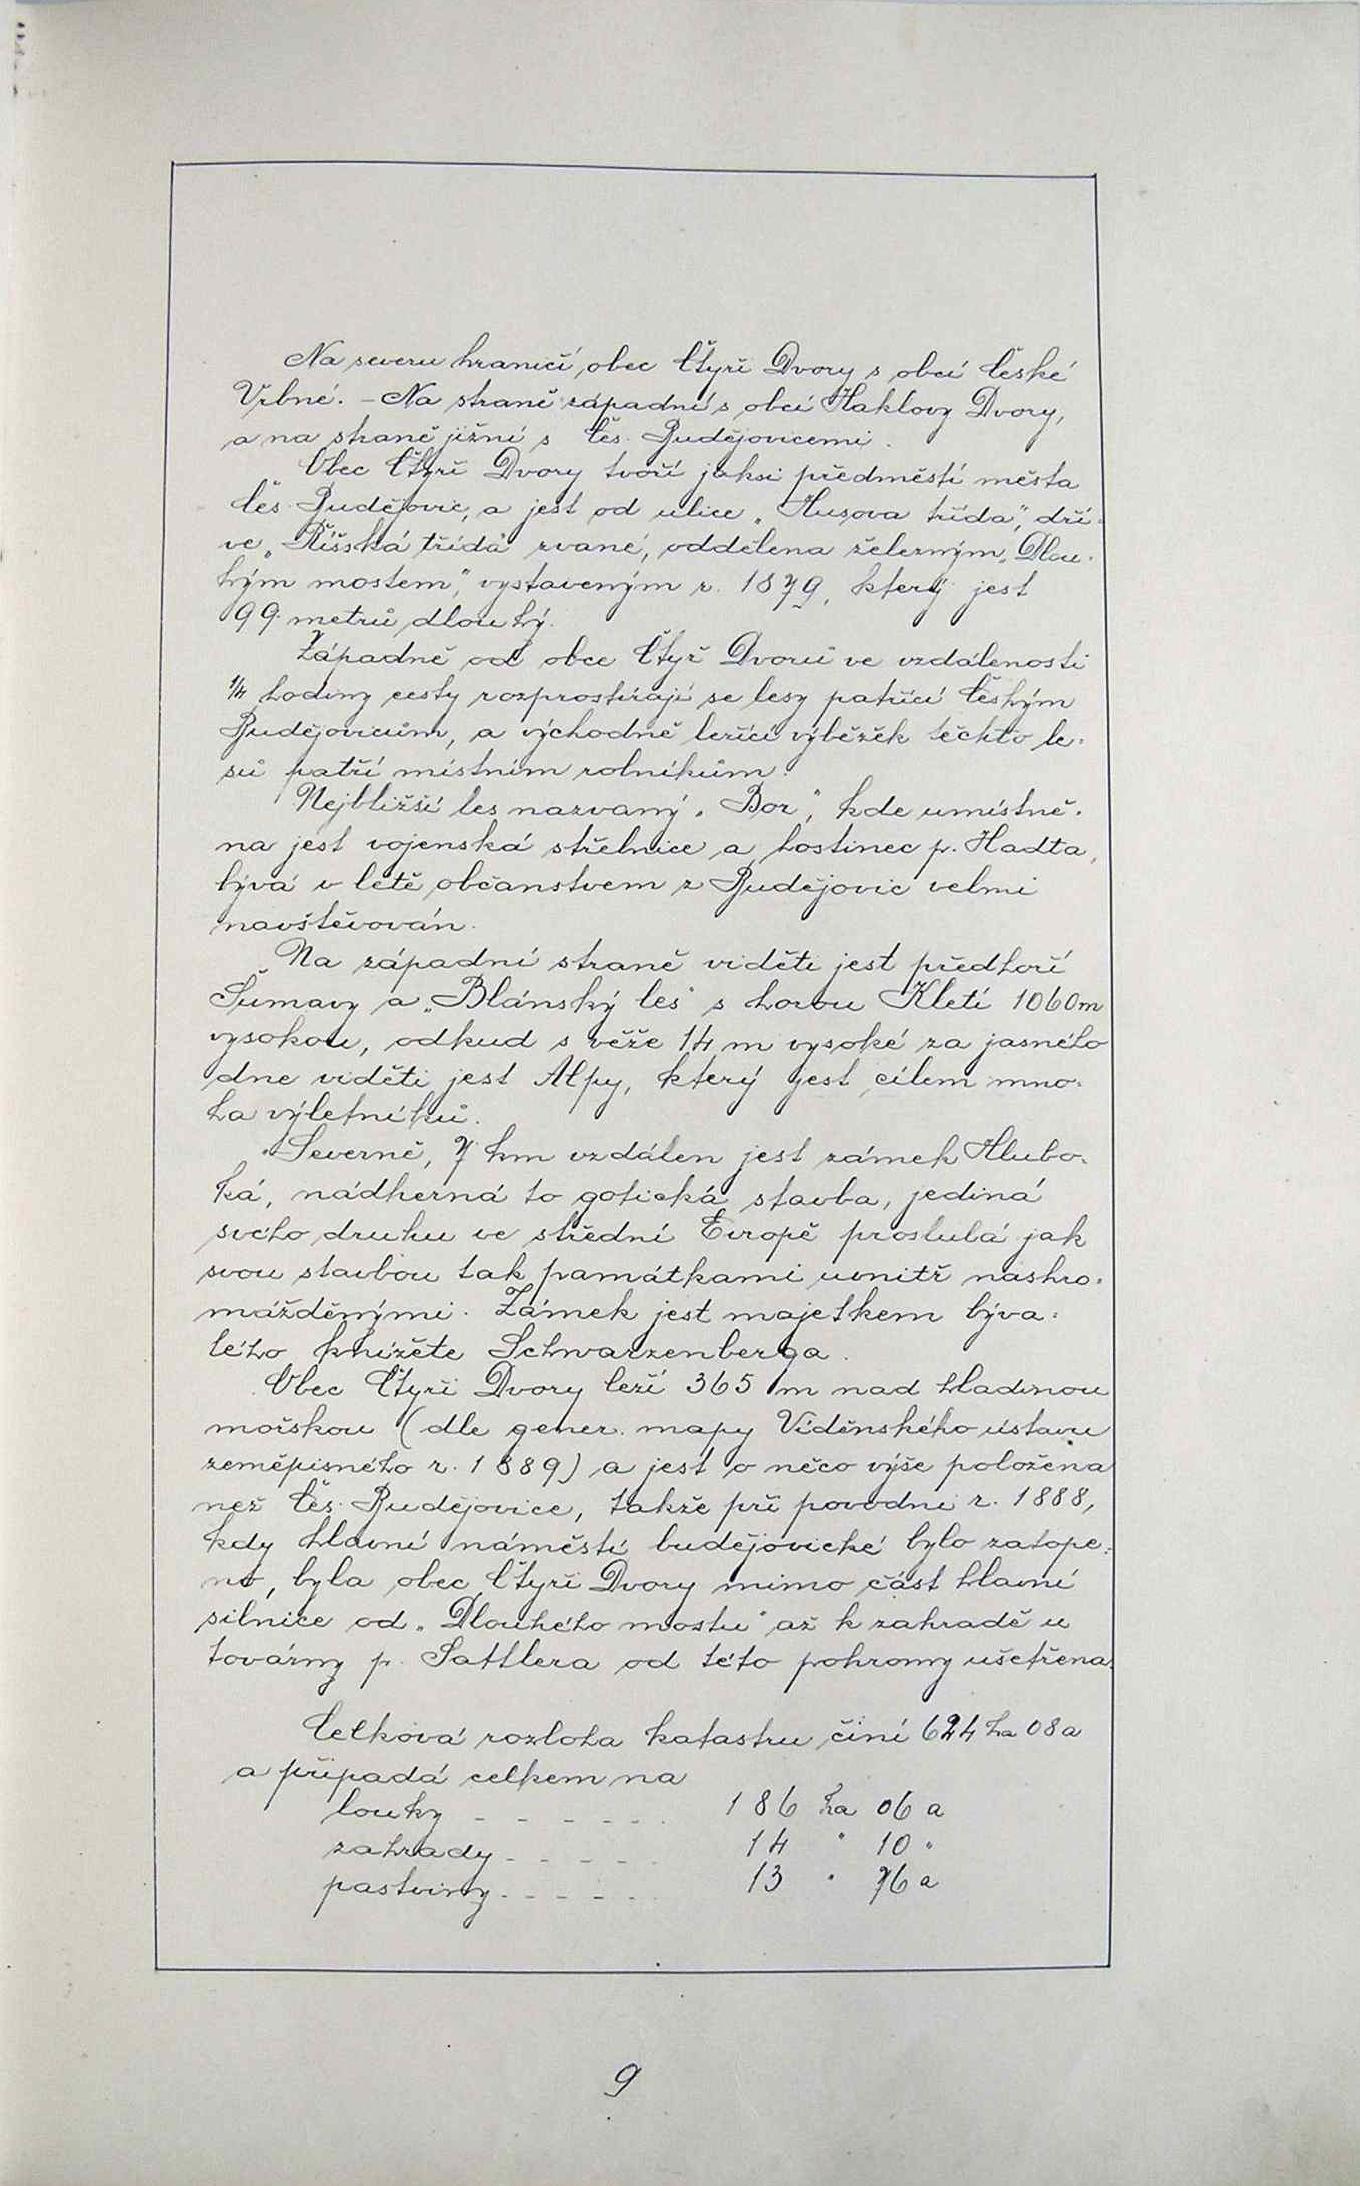 Na severu hraničí obec Čtyři Dvory s obcí České
Vrbné. – Na straně západní s obcí Haklovy Dvory,
a na straně jižní s Čes. Budějovicemi.
Obec Čtyři Dvory tvoří jaksi předměstí města
Čes. Budějovic, a jest od ulice „Husova třída", dří-
ve „Říšská třída" zvané, oddělena železným „Dlou-
hým mostem", vystaveným r. 1879, který jest
99 metrů dlouhý.
Západně od obce Čtyř Dvorů ve vzdálenosti
1/4 hodiny cesty rozprostírají se lesy patřící Českým
Budějovicům, a východně ležící výběžek těchto le-
sů patří místním rolníkům.
Nejbližší les nazvaný „Bor", kde umístně-
na jest vojenská střelnice a hostinec p. Hadta,
bývá v létě občanstvem z Budějovic velmi
navštěvován.
Na západní straně viděti jest předhoří
Šumavy a „Blánský les" s horou Kletí 1060 m
vysokou, odkud s věže 14 m vysoké za jasného
dne viděti jest Alpy, který jest cílem mno-
ha výletníků.
Severně, 7 km vzdálen jest zámek Hlubo-
ká, nádherná to gotická stavba, jediná
svého druhu ve střední Evropě proslulá jak
svou stavbou tak památkami uvnitř nashro-
mážděnými. Zámek jest majetkem býva-
lého knížete Schwarzenberga.
Obec Čtyři Dvory leží 365 m nad hladinou
mořskou (dle gener. mapy Víděnského ústavu
zeměpisného r. 1889) a jest o něco výše položena
než Čes. Budějovice, takže při povodni r. 1888,
kdy hlavní náměstí budějovické bylo zatope-
no, byla obec Čtyři Dvory mimo část hlavní
silnice od „Dlouhého mostu" až k zahradě u
továrny p. Sattlera od této pohromy ušetřena.
Celková rozloha katastru činí 624 ha 08 a
a připadá celkem na
louky - - - - - - 186 ha 06 a
zahrady - - - - - 14 " 10 "
pastviny - - - - - 13 " 76 a
9